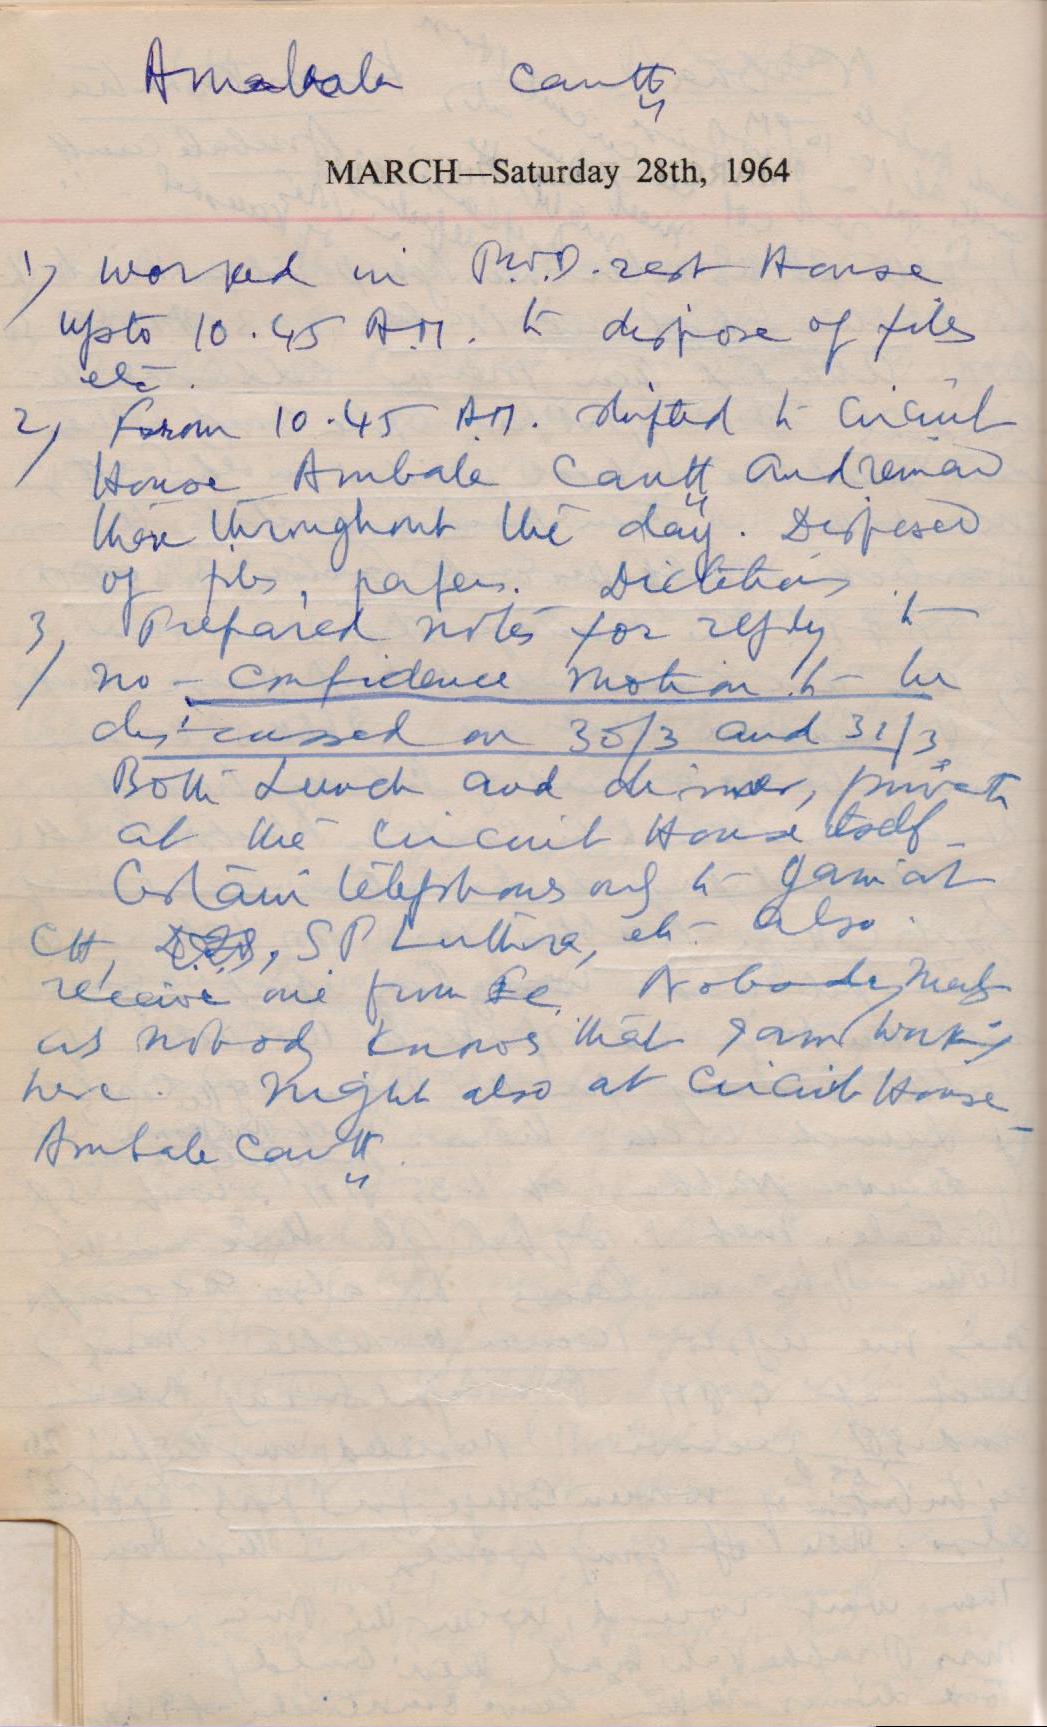 Ambala Cantt
MARCH—Saturday 28th, 1964
1) Worked in P.W.D. rest House
upto 10.45 A.M. to dispose of files
etc.
2) From 10.45 A.M. shifted to Circuit
House Ambala Cantt and remain
there throughout the day. Disposed
of files, papers. Dictations.
3) Prepared notes for reply to
no-confidence motion to be
discussed on 30/3 and 31/3
Both Lunch and dinner, private
at the Circuit House itself
Certain telephones only to at
CH, S P Luthra, etc. also
receive one from Nobody
as nobody knows that I am working
here. Night also at Circuit House
Ambala Cantt